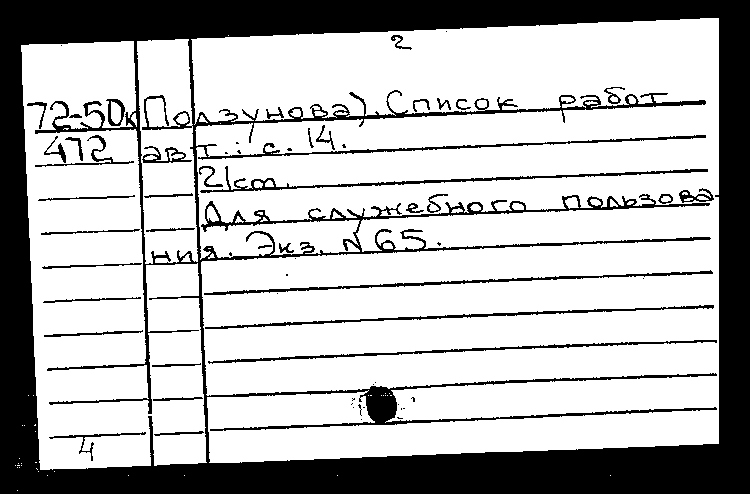 2
72-50к Ползунова). Список работ
472 авт.: с. 14.
21cm.
Для служебного пользова-
ния. Экз. N 65.
4